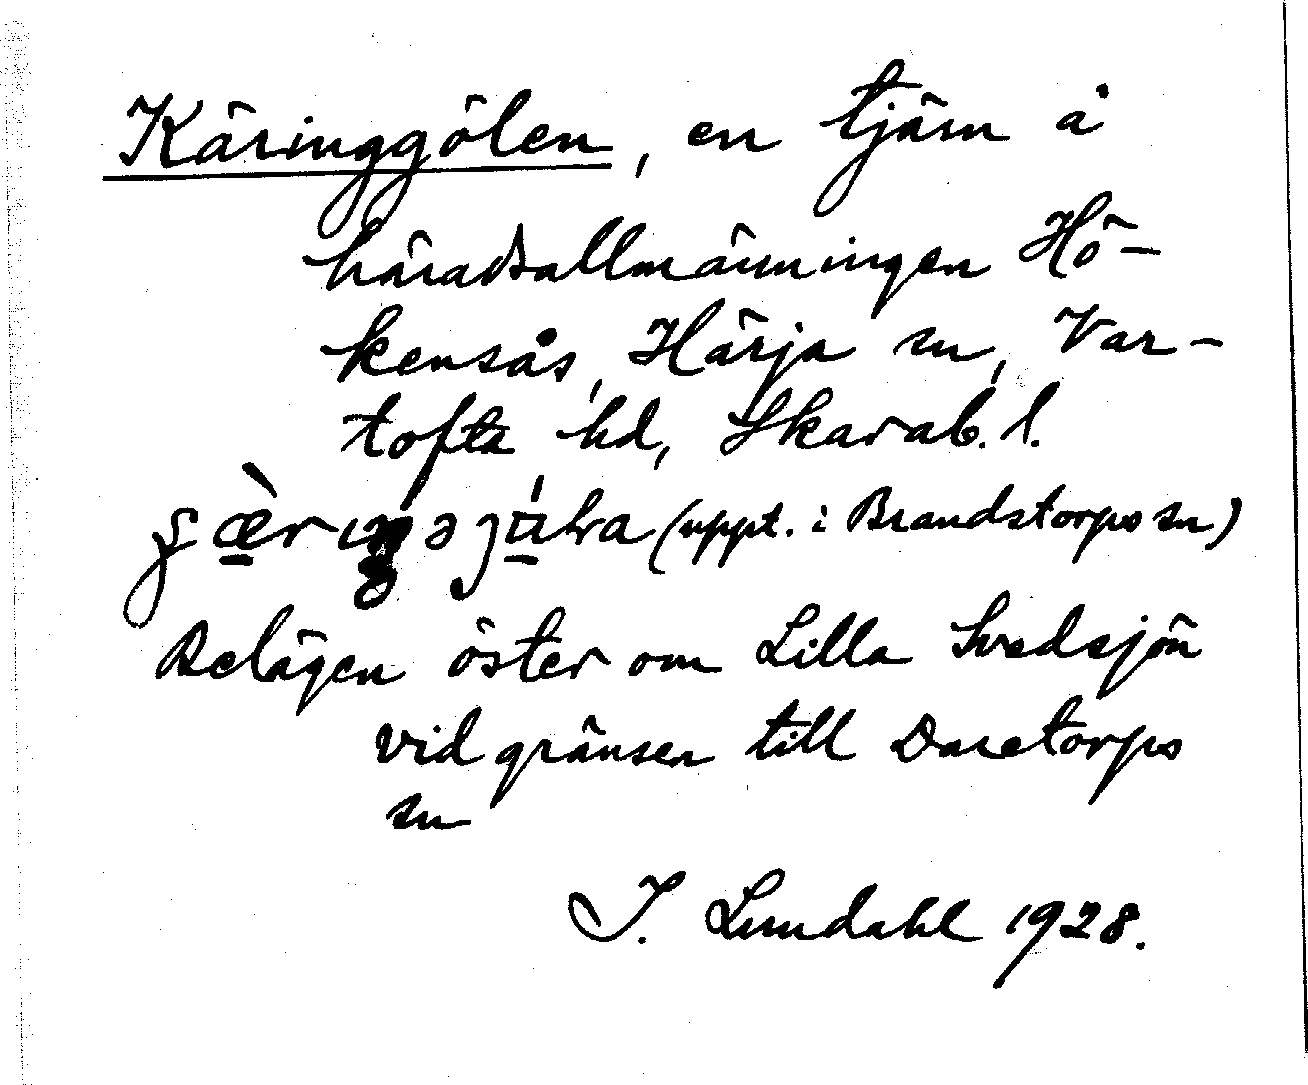 Käringgölen, en tjärn å
häradsallmänningen Hö-
kensås, Härja sn, Var-
tofta hd, Skarab. l.
(uppt. i Brandstorps sn)
Belägen öster om Lilla Svedsjön
vid gränsen till Daretorps
sn
I. Lundahl 1928.